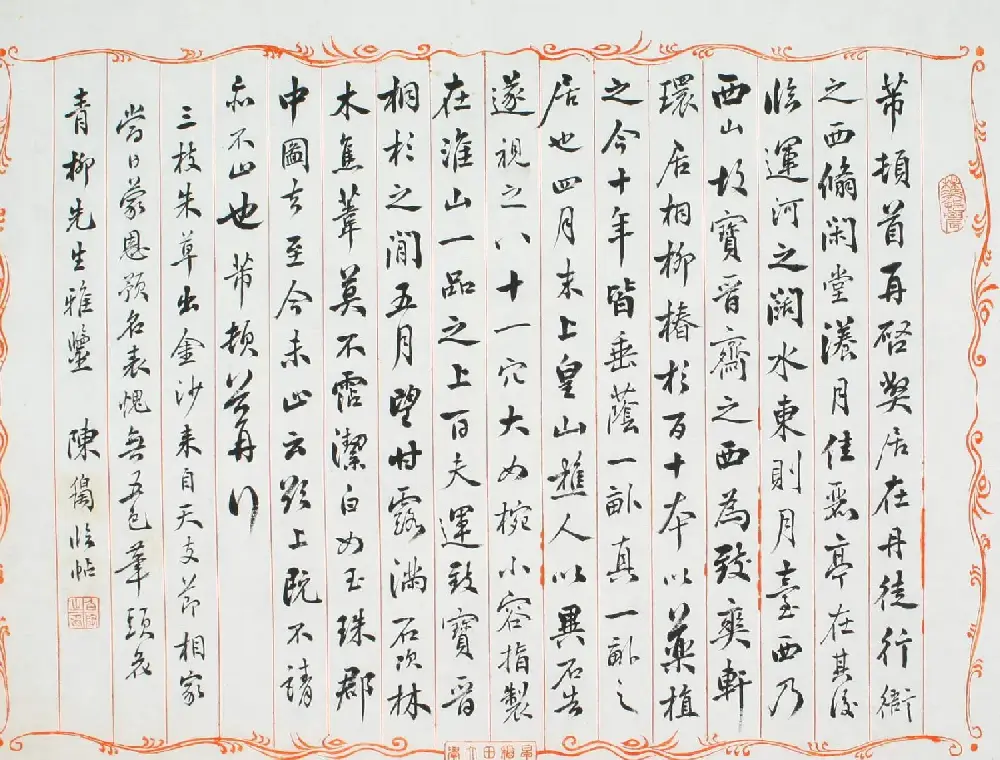 芾頓首再啓獘居在丹徒行衙
之西脩閑堂漾月佳麗亭在其後
臨運河之闊水東則月臺西乃
西山故寶晉齋之西為致爽軒
環居桐柳椿杉百十本以藥植
之今十年皆垂蔭一畝真一畝之
居也四月末上皇山樵人以異石告
遂視之八十一穴大如椀小容指製
在淮山一品之上百夫運致寶晉
桐杉之間五月望甘露滿石次林
木焦葦莫不霑潔白如玉珠郡
中圖去至今未止云欲上既不請
亦不止也芾頓首再行
三枝朱草出金沙來自天支節相家
當日蒙恩預名表愧無五色筆頭花
青柳先生雅鑒 陳臨帖